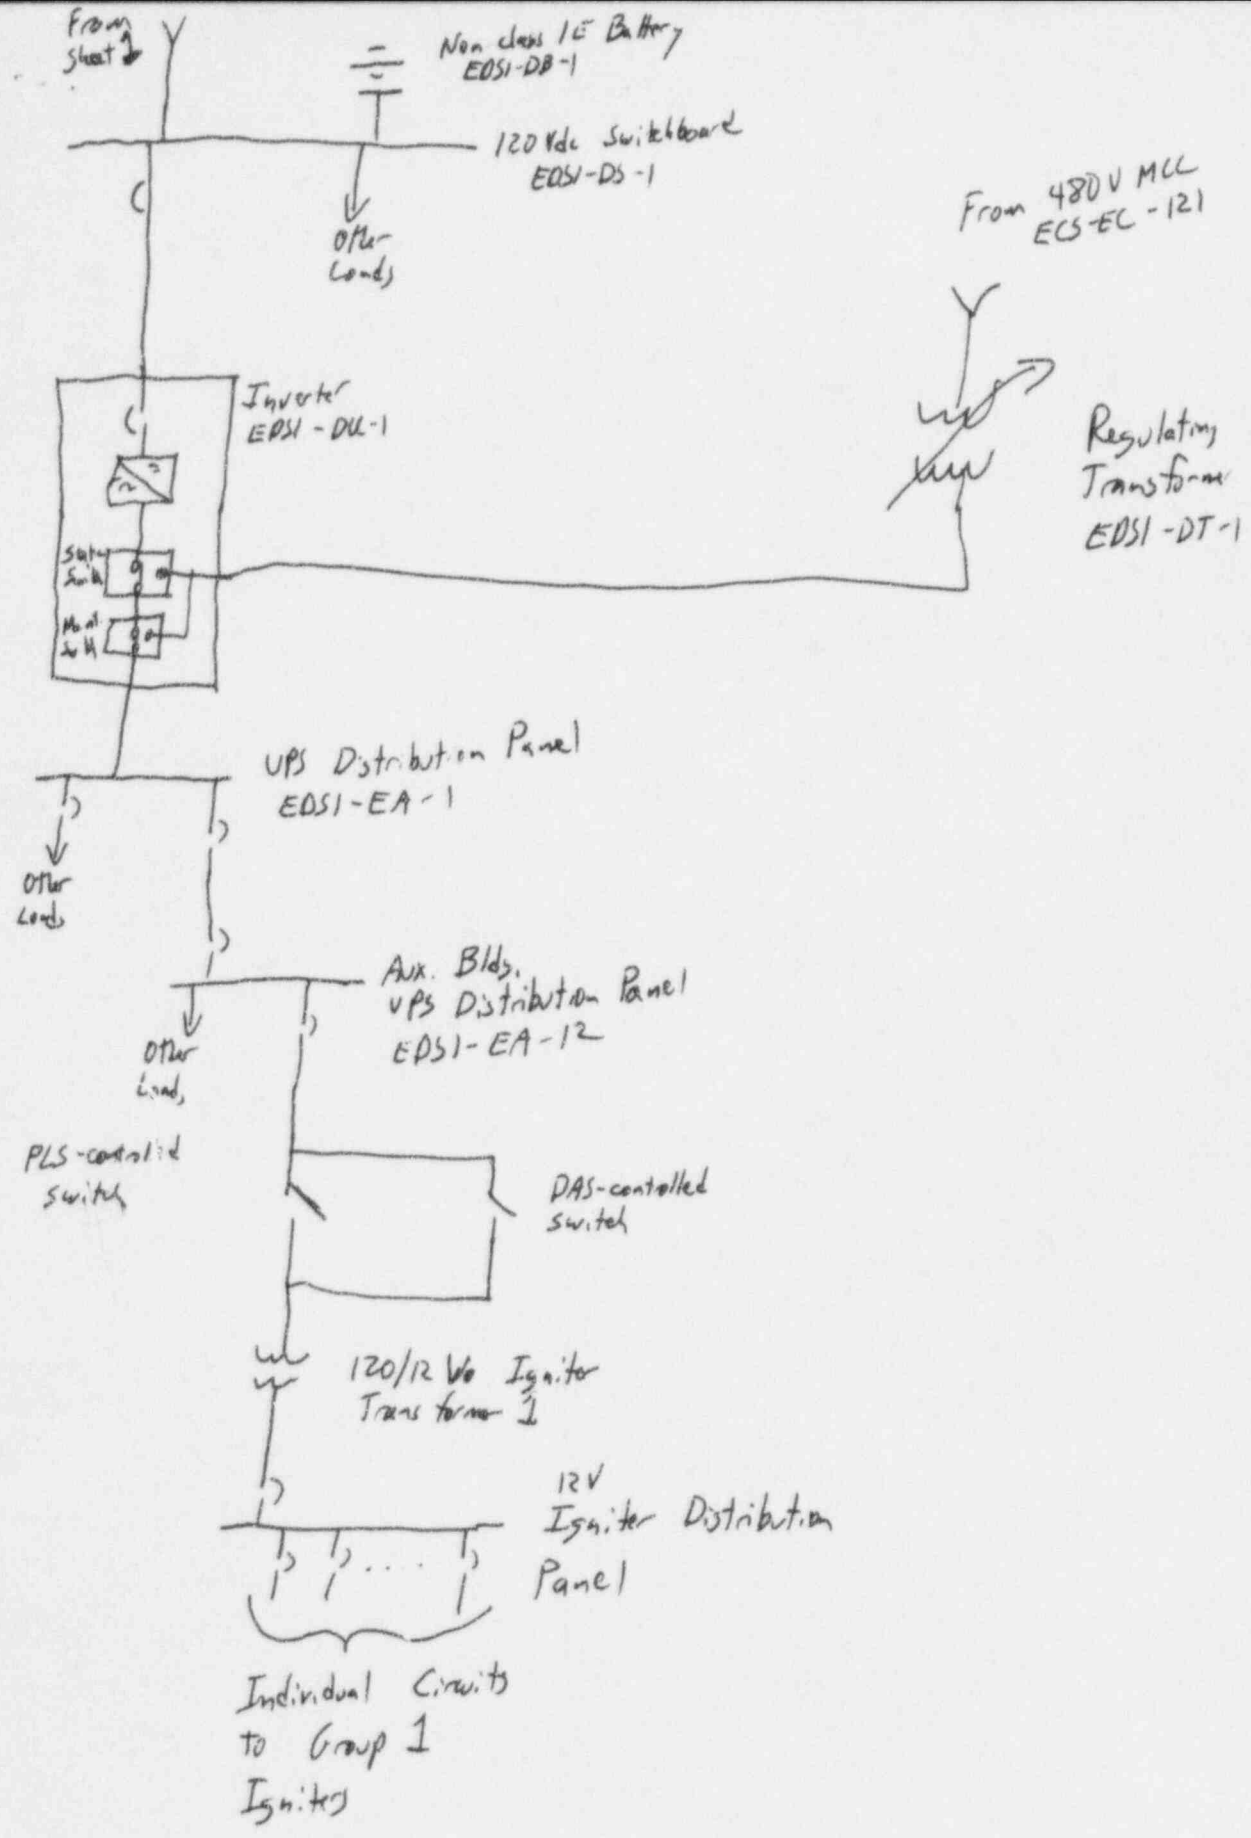 From
Sheet
Non class 1E Battery
EDS1-DB-1
120 Vdc Switchboard
EDS1-DS-1
Other
Loads
From 480 V MCC
ECS-EC-121
Inverter
EDS1-DU-1
Static
Switch
Maint.
Switch
Regulating
Transformer
EDS1-DT-1
UPS Distribution Panel
EDS1-EA-1
Other
Loads
Aux. Bldg.
UPS Distribution Panel
EDS1-EA-12
Other
Loads
PLS-controlled
switch
DAS-controlled
switch
120/12 Ignitor
Transformer 1
12V
Igniter Distribution
Panel
....
Individual Circuits
to Group 1
Igniters